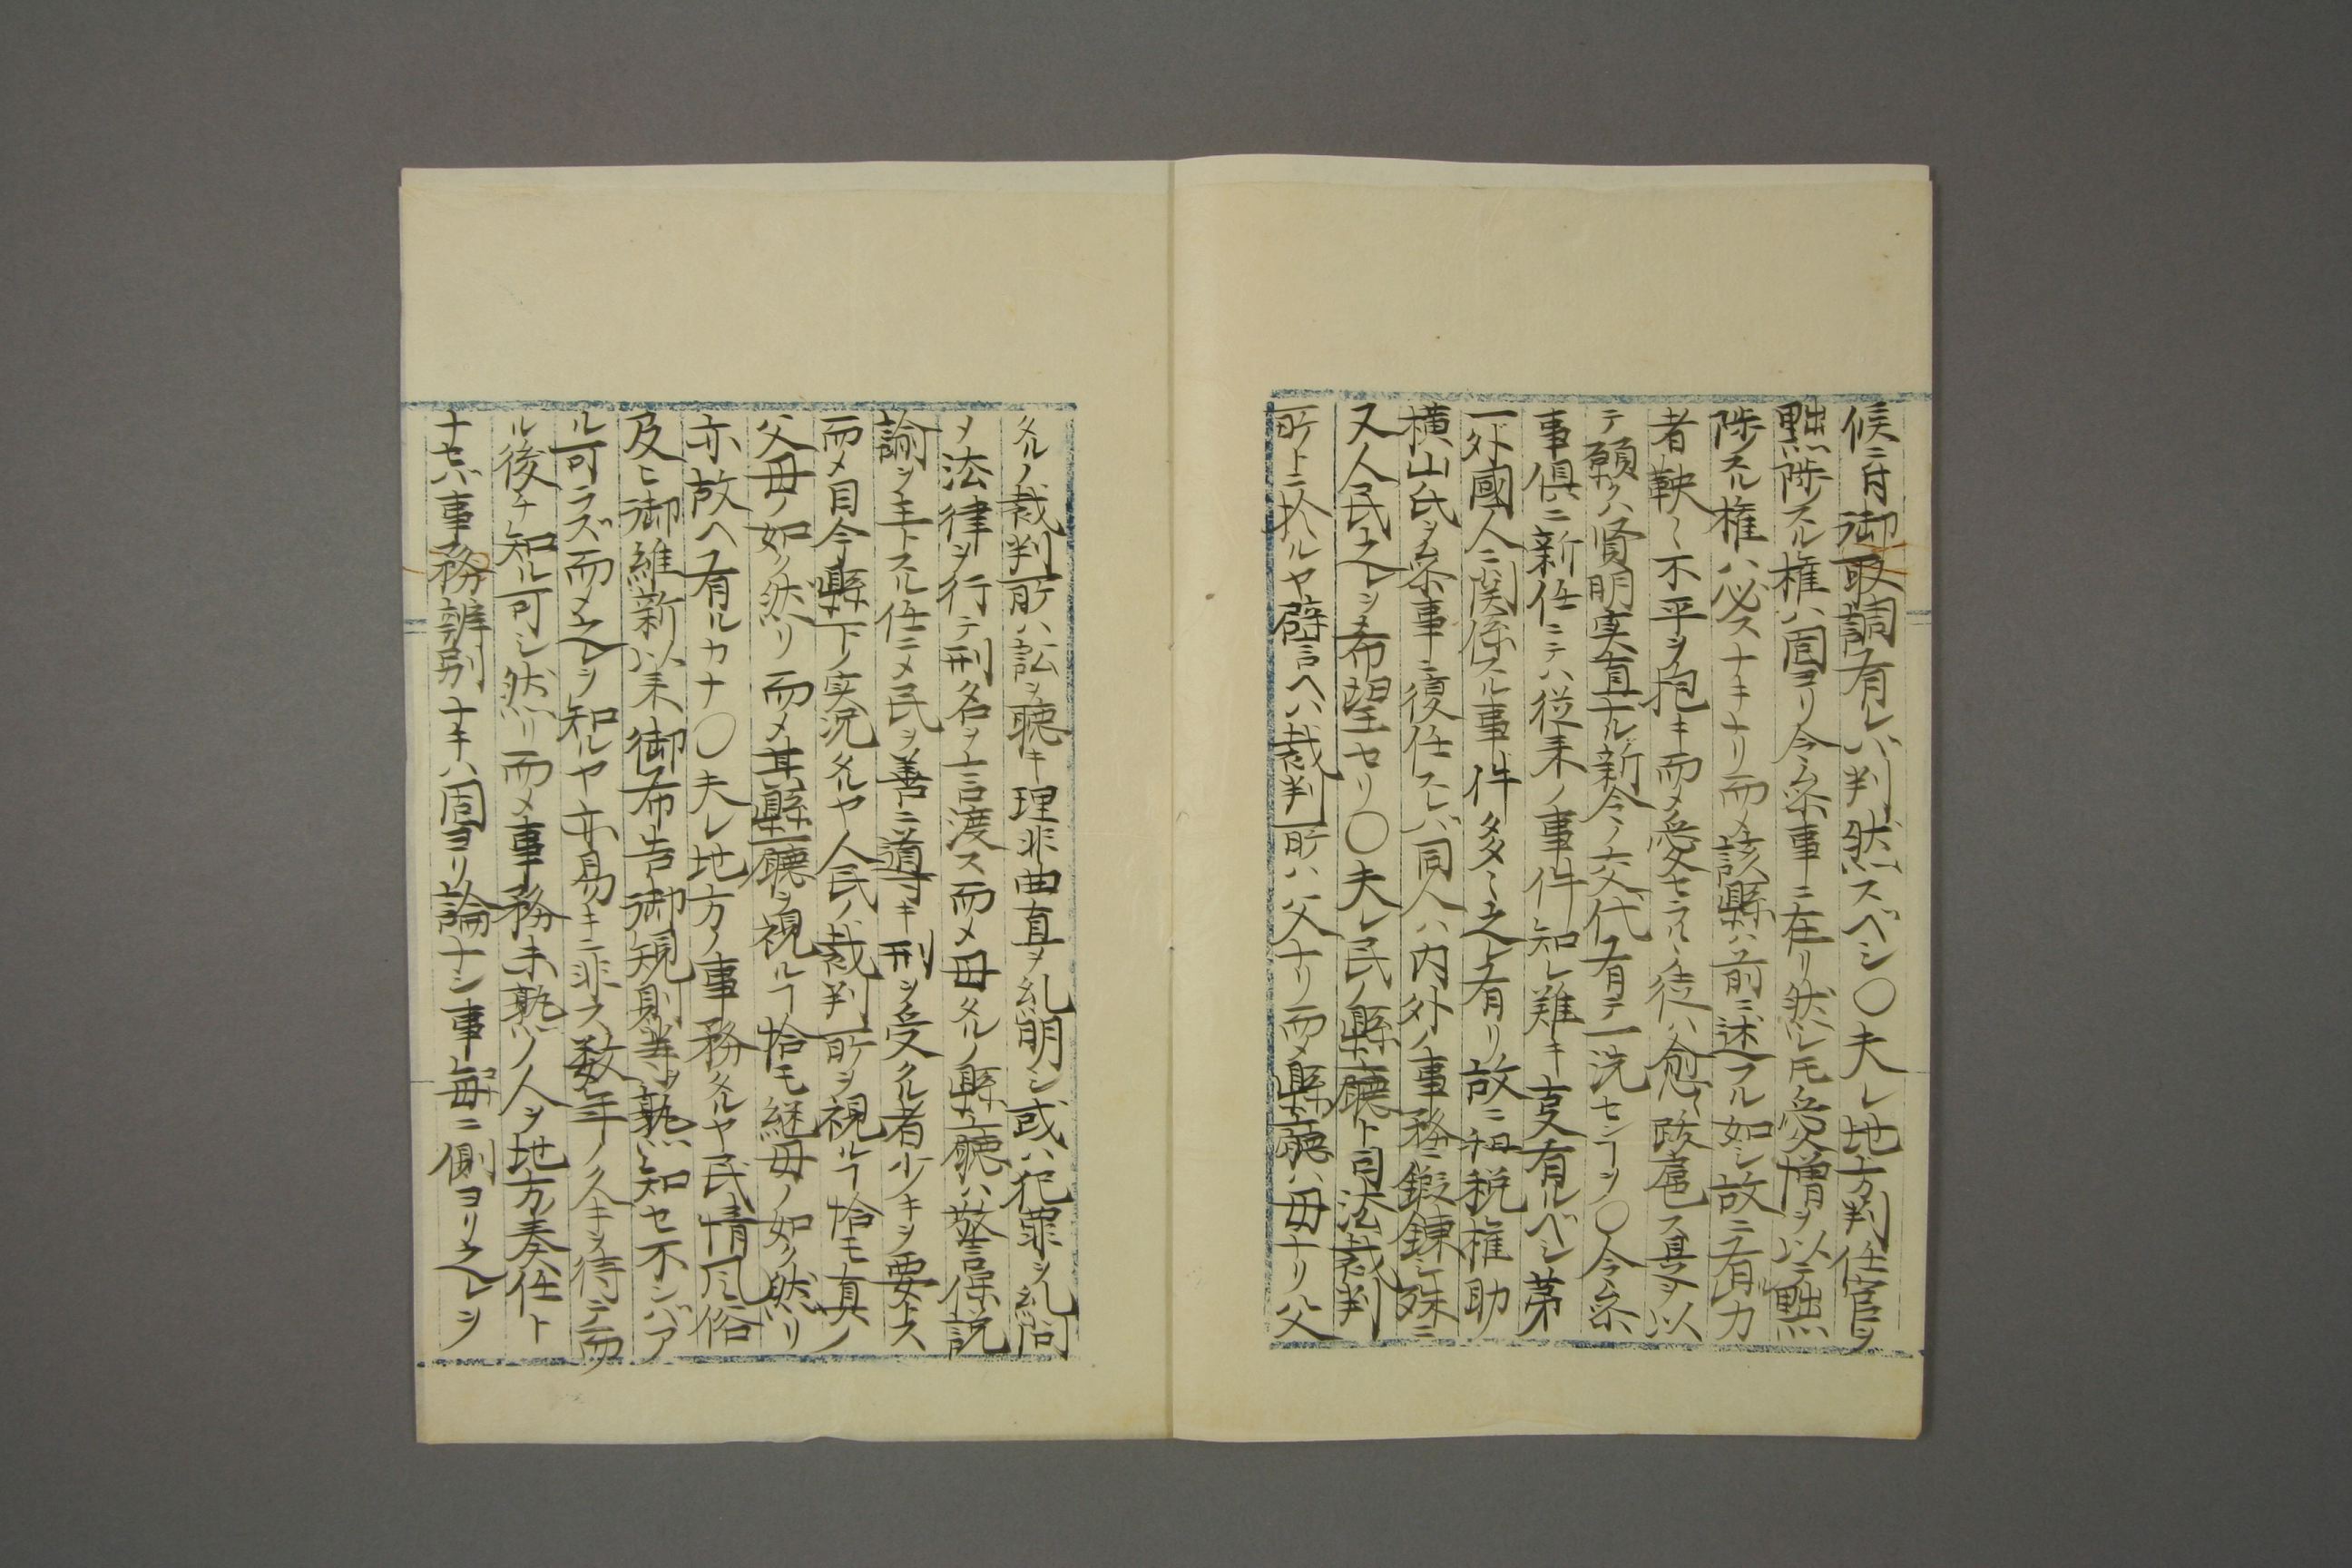 候ニ付御取調有レハ判然スベシ〇夫レ地方判任官ヲ
黜陟スル権ハ固ヨリ令参事ニ在リ然レ𪜈愛憎ヲ以テ黜
陟スル権ハ必スナキナリ而メ該縣ハ前ニ述フル如シ故ニ有力
者鞅〻不平ヲ抱キ而メ愛セラルヽ徒ハ愈〻跋扈ス是ヲ以
テ願クハ賢明実直ナル新令ノ交代有テ一洗センヿヲ〇令参
事倶ニ新任ニテハ従来ノ事件知レ難キ支有ルベシ第
一外國人ニ関係スル事件多々之レ有リ故ニ租税権助
横山氏ヲ参事ニ復任スレバ同人ハ内外ノ事務ニ鍛錬シ殊ニ
又人民之レヲ希望セリ〇夫レ民ノ縣廳ト司法裁判
所トニ於ルヤ譬ヘハ裁判所ハ父ナリ而メ縣廳ハ母ナリ父
タルノ裁判所ハ訟ヲ聴キ理非曲直ヲ糺明シ或ハ犯罪ヲ糺問
ヲ法律ヲ行テ刑名ヲ言渡ス而メ母タルノ縣廳ハ警保説
諭ヲ主トスル任ニメ民ヲ善ニ導キ刑ヲ受クル者少キヲ要トス
而メ目今縣下ノ実況タルヤ人民ノ裁判所ヲ視ルヿ恰モ真ノ
父母ノ如ク然リ而メ其縣廳ヲ視ルヿ恰モ継母ノ如ク然リ
亦故ヘ有ルカナ〇夫レ地方ノ事務タルヤ民情風俗
及ヒ御維新以来御布告御規則等ヲ熟知セ不ンバア
ル可ラズ而メ之レヲ知ルヤ亦易キニ非ス数年ノ久キヲ待テ而
ル後チ知ル可シ然リ而メ事務未熟ノ人ヲ地方奏任ト
ナセバ事務辨別ナキハ固ヨリ論ナシ事毎ニ側ヨリ之レヲ